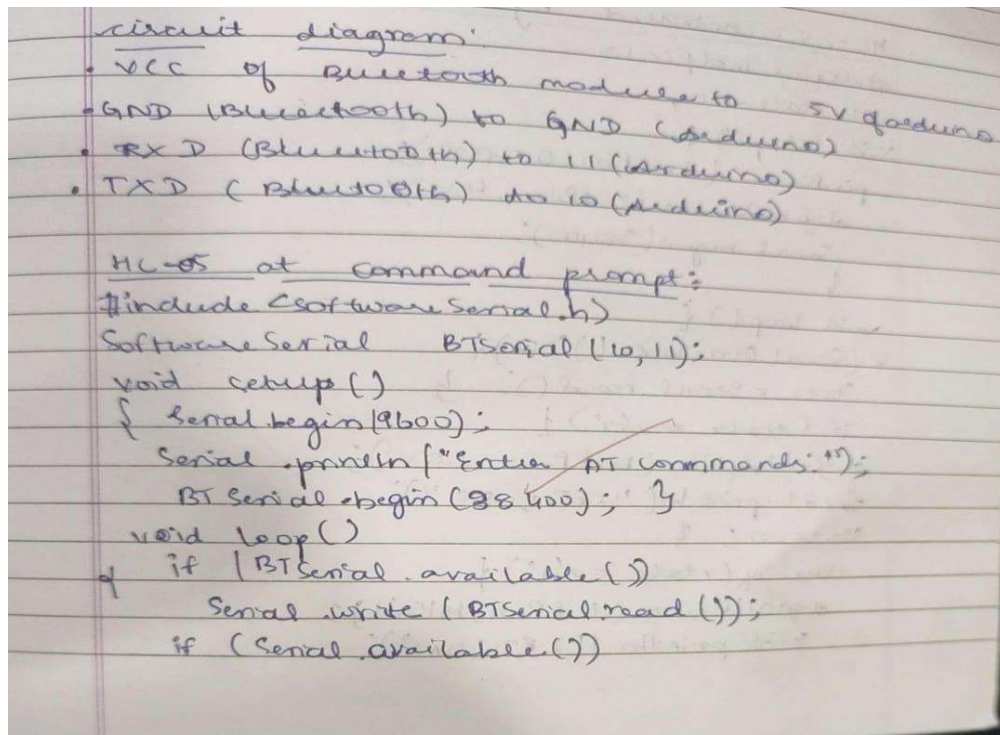 circuit diagram:
• VCC of Bluetooth module to 5V of arduino
• GND (Bluetooth) to GND (Arduino)
• RXD (Bluetooth) to 11 (Arduino)
• TXD (Bluetooth) to 10 (Arduino)
HC-05 at command prompt:
#include <software Serial.h>
Software Serial BTSerial (10, 11);
void setup ()
{ Serial.begin (9600);
Serial.println ("Enter AT commands:");
BT Serial.begin (38400); }
void loop ()
{ if (BTSerial.available ())
Serial.write (BTSerial.read ());
if (Serial.available ())